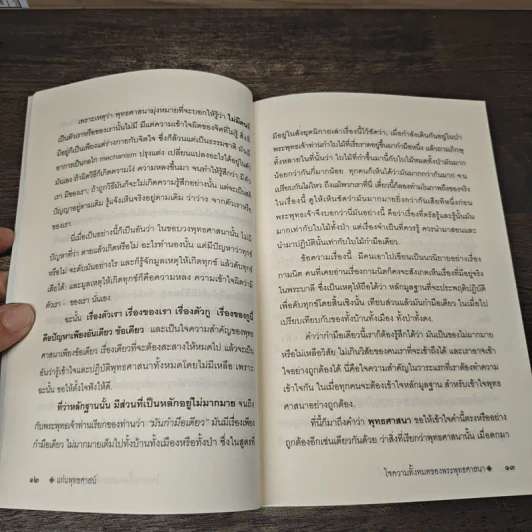 เพราะเหตุว่า พุทธศาสนามุ่งหมายที่จะบอกให้รู้ว่า ไม่มีคนที่
เป็นตัวเราหรือของเรานั้นไม่มี มีแต่ความเข้าใจผิดของจิตที่ไม่รู้ สิ่งที่
มีอยู่ก็เป็นเพียงแต่ร่างกายกับจิตใจ ซึ่งก็ล้วนแต่เป็นธรรมชาติ มันมี
อาการที่เป็นกลไก mechanism ปรุงแต่ง เปลี่ยนแปลงอะไรได้อยู่ใน
มันเอง ถ้าผิดวิธีก็เกิดความโง่ ความหลงขึ้นมา จนทำให้รู้สึกว่า มีตัวเรา
มี ของเรา; ถ้าถูกวิธีมันก็จะไม่เกิดความรู้สึกอย่างนั้น แต่จะเป็น
ปัญญาอยู่ตามเดิม รู้แจ้งเห็นจริงอยู่ตามเดิม ว่าว่าง จากตัวเราหรือ
ของเรา
นี่เมื่อเป็นอย่างนี้ก็เป็นอันว่า ในขอบวงพุทธศาสนานั้น ไม่มี
ปัญหาที่ว่า ตายแล้วเกิดหรือไม่ อะไรทำนองนั้น แต่มีปัญหาว่าทุกข์
หรือไม่ จะดับมันอย่างไร และก็รู้จักมูลเหตุให้เกิดทุกข์ แล้วดับทุกข์
เสียได้: และมูลเหตุให้เกิดทุกข์ก็คือความหลง ความเข้าใจผิดว่ามี
ตัวเรา - ของเรา นั่นเอง
ฉะนั้น เรื่องตัวเรา เรื่องของเรา เรื่องตัวกู เรื่องของกูนี้
คือปัญหาเพียงอันเดียว ข้อเดียว และเป็นใจความสำคัญของพุทธ
ศาสนาเพียงข้อเดียว เรื่องเดียวที่จะต้องสะสางให้หมดไป แล้วจะเป็น
อันว่ารู้เข้าใจและปฏิบัติพุทธศาสนาทั้งหมดโดยไม่มีเหลือ เพราะ
ฉะนั้น ขอให้ตั้งใจฟังให้ดี
ที่ว่าหลักฐานนั้น มีส่วนที่เป็นหลักอยู่ไม่มากมาย จนถึง
กับพระพุทธเจ้าท่านเรียกของท่านว่า “มันกำมือเดียว” มันมีเรื่องเพียง
กำมือเดียว ไม่มากมายเต็มไปทั้งบ้านทั้งเมืองหรือทั้งป่า ซึ่งในสูตรที่
๑๒ ◆ แก่นพุทธศาสน์
มีอยู่ในสังยุตนิกายเล่าเรื่องนี้ไว้ชัดว่า; เมื่อกำลังเดินกันอยู่ในป่า
พระพุทธเจ้าท่านกำใบไม้ที่เรี่ยราดอยู่ขึ้นมากำมือหนึ่ง แล้วถามภิกษุ
ทั้งหลายในที่นั้นว่า ใบไม้ที่กำขึ้นมานี้กับใบไม้หมดทั้งป่ามันมาก
น้อยกว่ากันกี่มากน้อย. ทุกคนก็เห็นได้ว่ามันมากกว่ากันมาก จน
เปรียบกันไม่ไหว ถึงแม้พวกเราที่นี่ เดี๋ยวนี้ก็ลองทำมโนภาพถึงของจริง
ในเรื่องนี้ ดูให้เห็นชัดว่ามันมากมายยิ่งกว่ากันเสียทีหนึ่งก่อน
พระพุทธเจ้าจึงบอกว่านี้มันอย่างนี้ คือว่าเรื่องที่ตรัสรู้และรู้นั้นมัน
มากเท่ากับใบไม้ทั้งป่า แต่เรื่องจำเป็นที่ควรรู้ ควรนำมาสอนและ
นำมาปฏิบัตินั้นเท่ากับใบไม้กำมือเดียว.
ข้อความเรื่องนี้ มีคนเอาไปเขียนเป็นนวนิยายอย่างเรื่อง
กามนิต คนที่เคยอ่านเรื่องกามนิตก็คงจะสังเกตเห็นเรื่องที่มีอยู่จริง
ในพระบาลี ซึ่งเป็นเหตุให้ถือได้ว่า หลักมูลฐานที่จะประพฤติปฏิบัติ
เพื่อดับทุกข์โดยสิ้นเชิงนั้น เทียบส่วนแล้วมันกำมือเดียว ในเมื่อไป
เปรียบเทียบกับของทั้งบ้านทั้งเมือง, ทั้งป่าทั้งดง.
คำว่ากำมือเดียวนี้เราก็ต้องรู้สึกได้ว่า มันเป็นของไม่มากมาย
หรือไม่เหลือวิสัย ไม่เกินวิสัยของคนเราที่จะเข้าถึงได้ และเราอาจเข้าใจ
อย่างถูกต้องได้. นี่คือใจความสำคัญในวาระแรกที่เราต้องทำความ
เข้าใจกัน ในเมื่อทุกคนจะต้องเข้าใจหลักมูลฐาน สำหรับเข้าใจพุทธ
ศาสนาอย่างถูกต้อง.
ทีนี้ก็มาถึงคำว่า พุทธศาสนา ขอให้เข้าใจคำนี้ตรงหรืออย่าง
ถูกต้องอีกเช่นเดียวกันด้วย ว่าสิ่งที่เรียกว่าพุทธศาสนานั้น เมื่อตกมา
ใจความทั้งหมดของพระพุทธศาสนา ◆ ๑๓